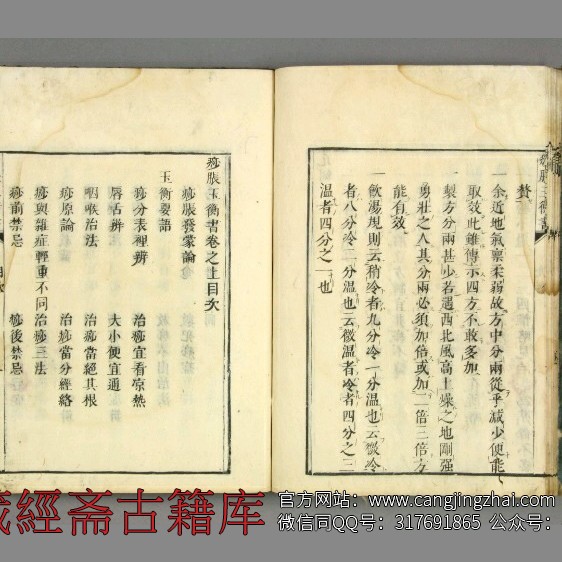 贅
一余近地氣禀柔弱故方中分兩從乎減少便能
取效此雖傳示四方不敢多加
一製方分兩甚少若遇西北風高土燥之地剛强
勇壯之人其分兩必須加倍或加一二倍三倍方
能有效
一飲湯規則云稍冷者九分冷一分温也云微冷
者八分冷二分温也云微温者冷者四分之三
温者四分之一也
痧脹玉衡書卷之上目次
痧脹發蒙論
玉衡要語
痧分表裡辨 治痧宜看凉熱
唇舌辨 大小便宜通
咽喉治法 治痧當絕其根
痧原論 治痧當分經絡
痧與雜症輕重不同 治痧三法
痧前禁忌 痧後禁忌
經斋古籍库
官方网站：www.cangjingzhai.com
微信同QQ号：317691865 公众号：